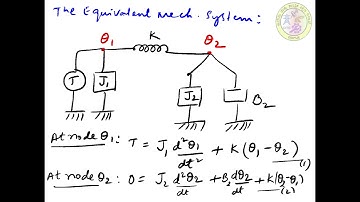 The Equivalent Mech. System:
θ1 K θ2
T J1 J2 B2
At node θ1: T = J1 d²θ1/dt² + K(θ1-θ2) (1)
At node θ2: 0 = J2 d²θ2/dt + B2 dθ2/dt + K(θ2-θ1) (2)